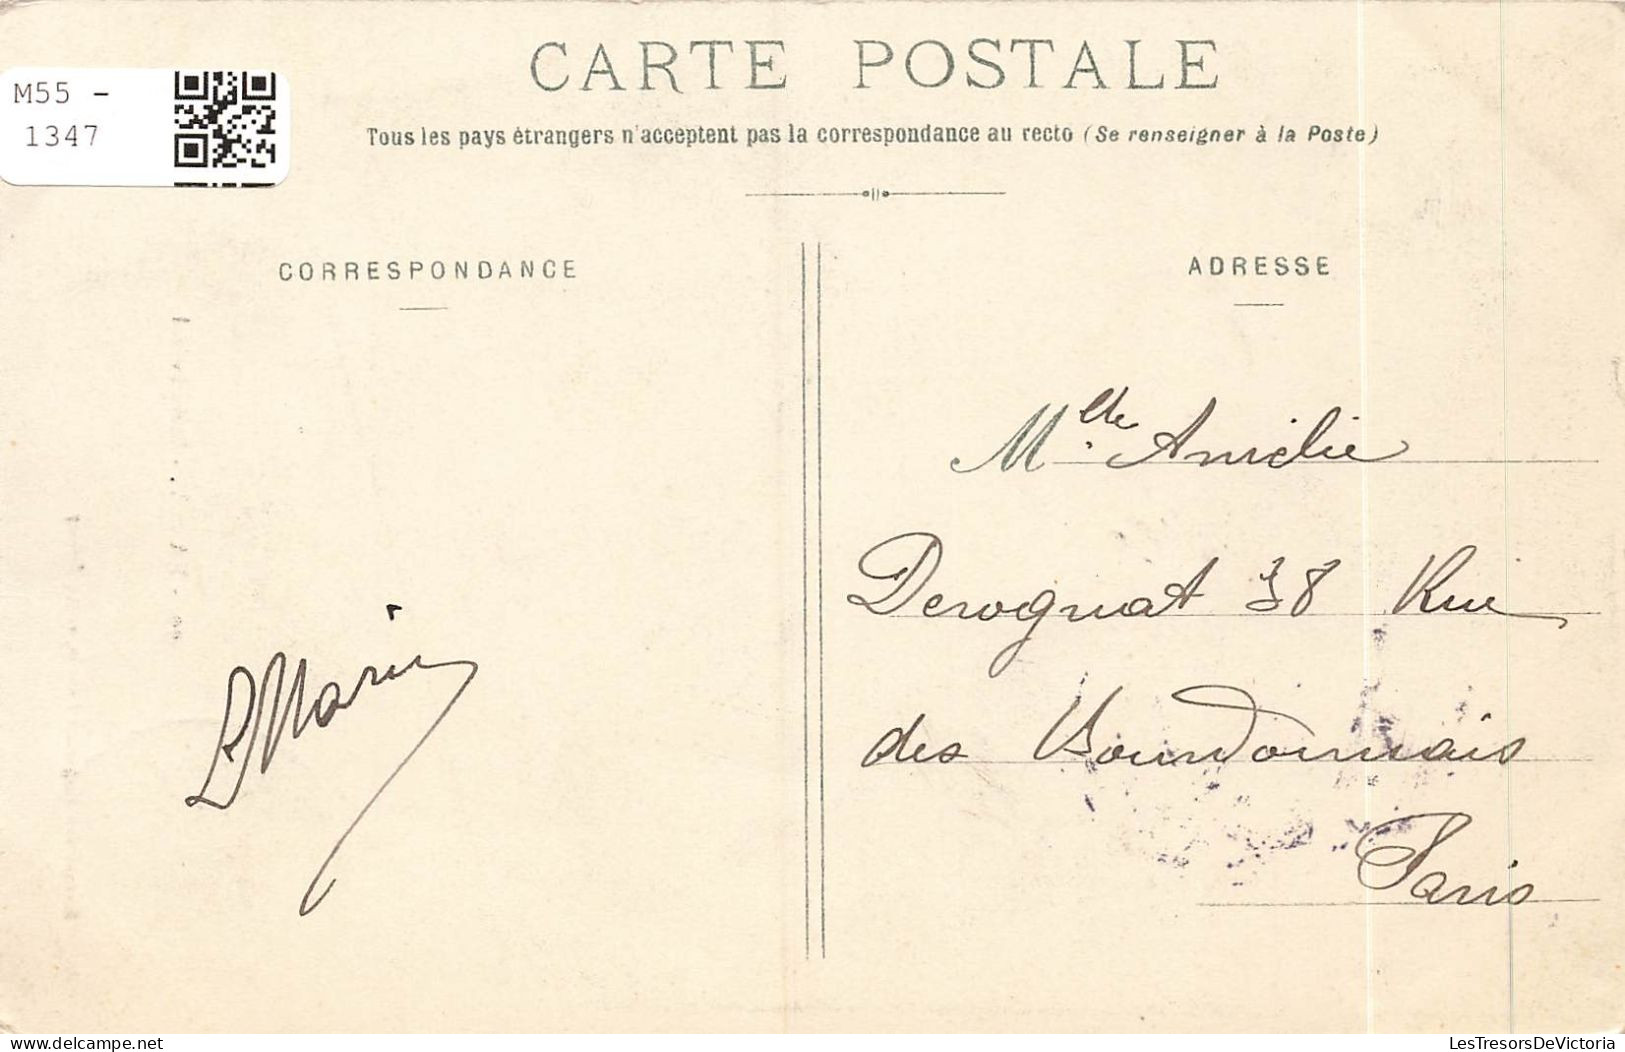 CARTE POSTALE
M55 -
1347
Tous les pays étrangers n'acceptent pas la correspondance au recto (Se renseigner à la Poste)
CORRESPONDANCE
Marie
ADRESSE
Mlle Amélie
Derognat 38 Rue
des Bourdonnais
Paris
LesTresorsDeVictoria
delcampe.net